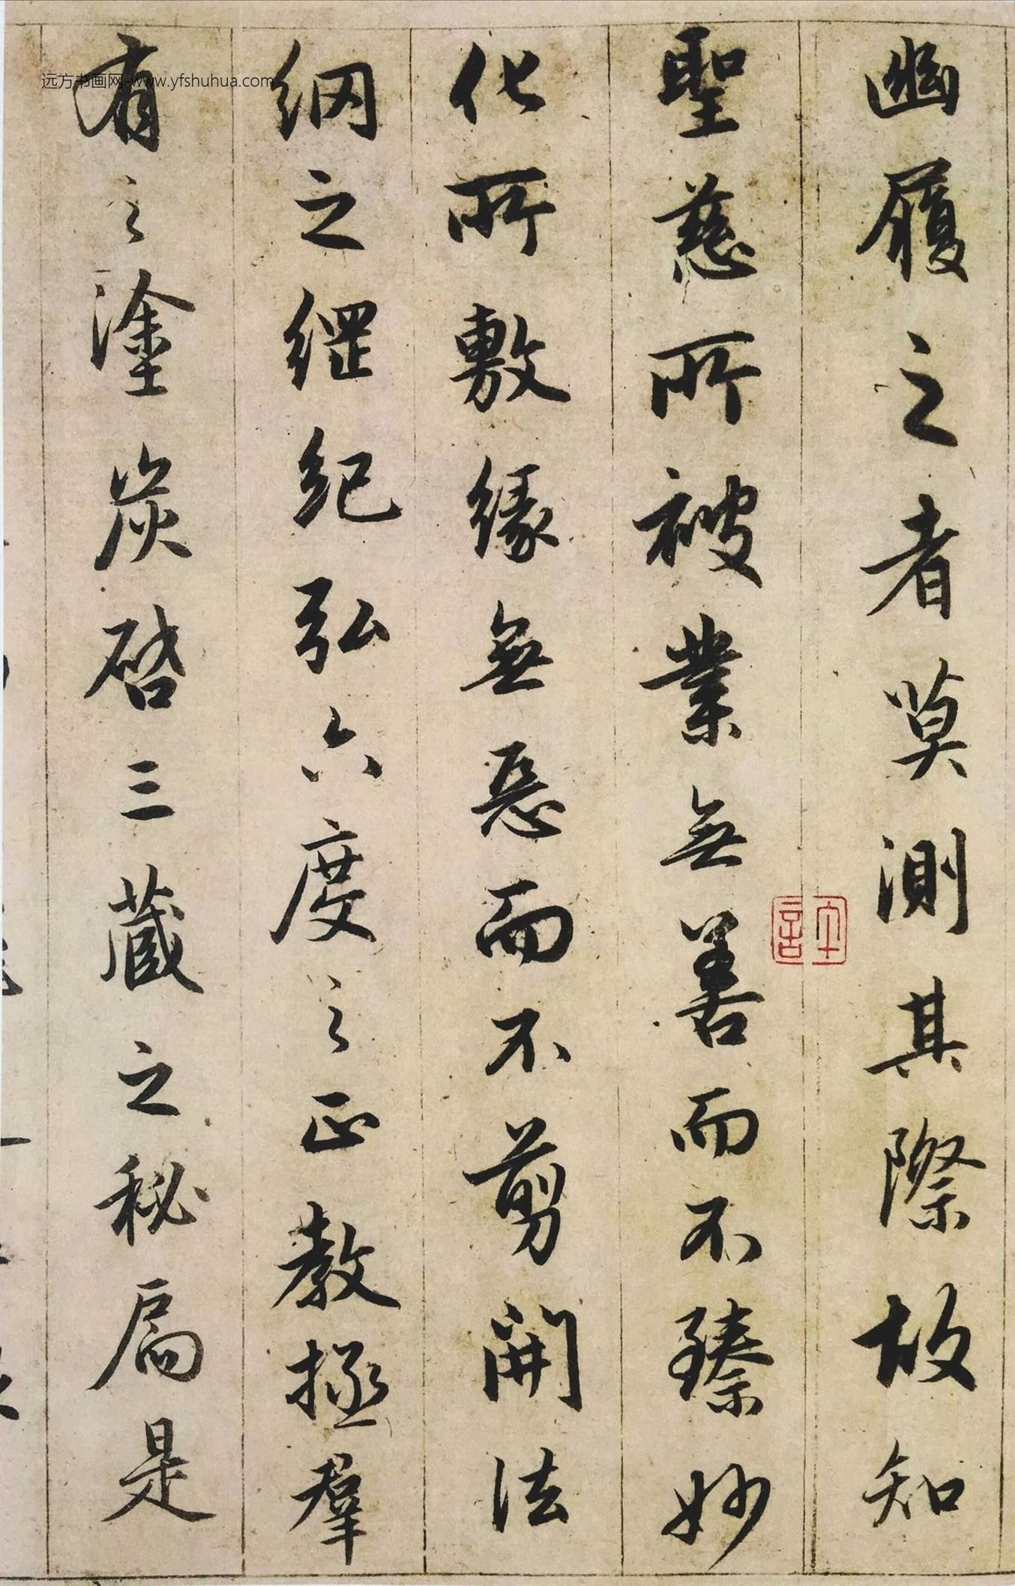 幽履之者莫測其際故知
聖慈所被業無善而不臻妙
化所敷緣無惡而不剪開法
網之綱紀弘六度之正教拯羣
有之塗炭啓三藏之秘扃是
远方书画网-www.yfshuhua.com